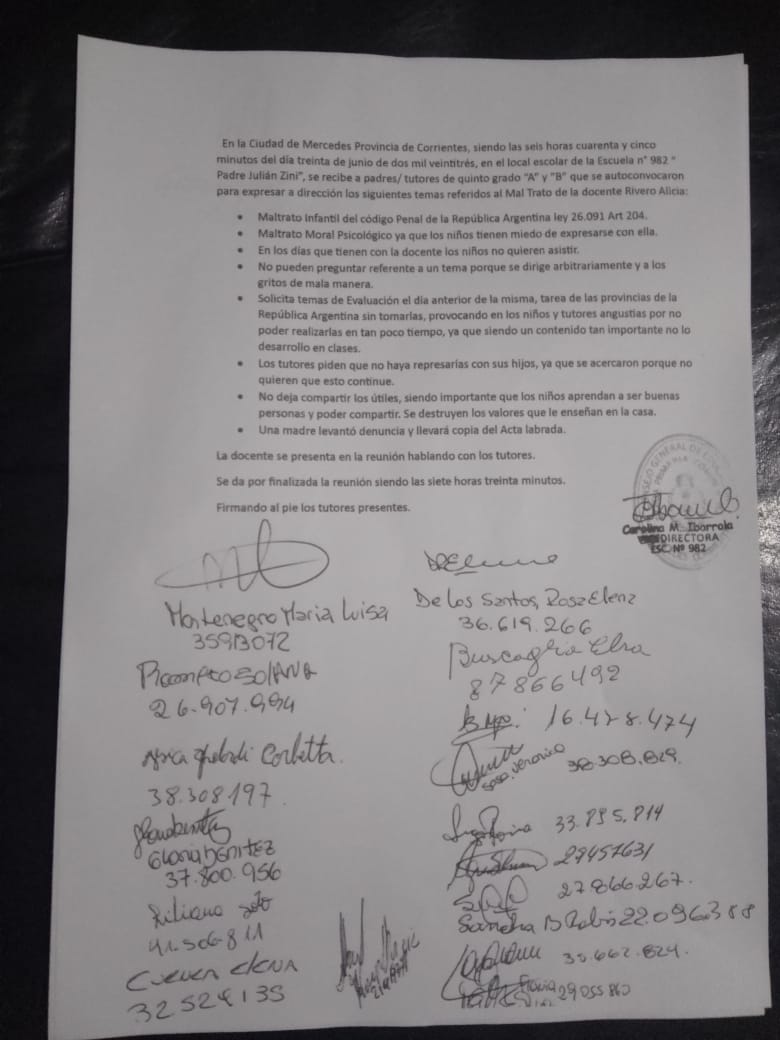 En la Ciudad de Mercedes Provincia de Corrientes, siendo las seis horas cuarenta y cinco
minutos del día treinta de junio de dos mil veintitrés, en el local escolar de la Escuela n° 982 "
Padre Julián Zini", se recibe a padres/ tutores de quinto grado "A" y "B" que se autoconvocaron
para expresar a dirección los siguientes temas referidos al Mal Trato de la docente Rivero Alicia:
• Maltrato Infantil del código Penal de la República Argentina ley 26.091 Art 204.
• Maltrato Moral Psicológico ya que los niños tienen miedo de expresarse con ella.
• En los días que tienen con la docente los niños no quieren asistir.
• No pueden preguntar referente a un tema porque se dirige arbitrariamente y a los
gritos de mala manera.
• Solicita temas de Evaluación el día anterior de la misma, tarea de las provincias de la
República Argentina sin tomarlas, provocando en los niños y tutores angustias por no
poder realizarlas en tan poco tiempo, ya que siendo un contenido tan importante no lo
desarrollo en clases.
• Los tutores piden que no haya represarías con sus hijos, ya que se acercaron porque no
quieren que esto continue.
• No deja compartir los útiles, siendo importante que los niños aprendan a ser buenas
personas y poder compartir. Se destruyen los valores que le enseñan en la casa.
• Una madre levantó denuncia y llevará copia del Acta labrada.
La docente se presenta en la reunión hablando con los tutores.
Se da por finalizada la reunión siendo las siete horas treinta minutos.
Firmando al pie los tutores presentes.
Carolina M. Iborrola
DIRECTORA
ESC. Nº 982
Montenegro Maria Luisa
De Los Santos, Rosa Elena
36.619.266
Buscaglia Elsa
87866492
26.907.994
16.428.474
Corbetta.
38.308.197.
Sosa Veronica 38.308.829.
33.895.814
Gloria BENITEZ
37.800.956
29457631
27.866.267.
Liliana Soto
41.506.811
22.096388
CUEVA ELENA
32524135
35.662.824.
29055860